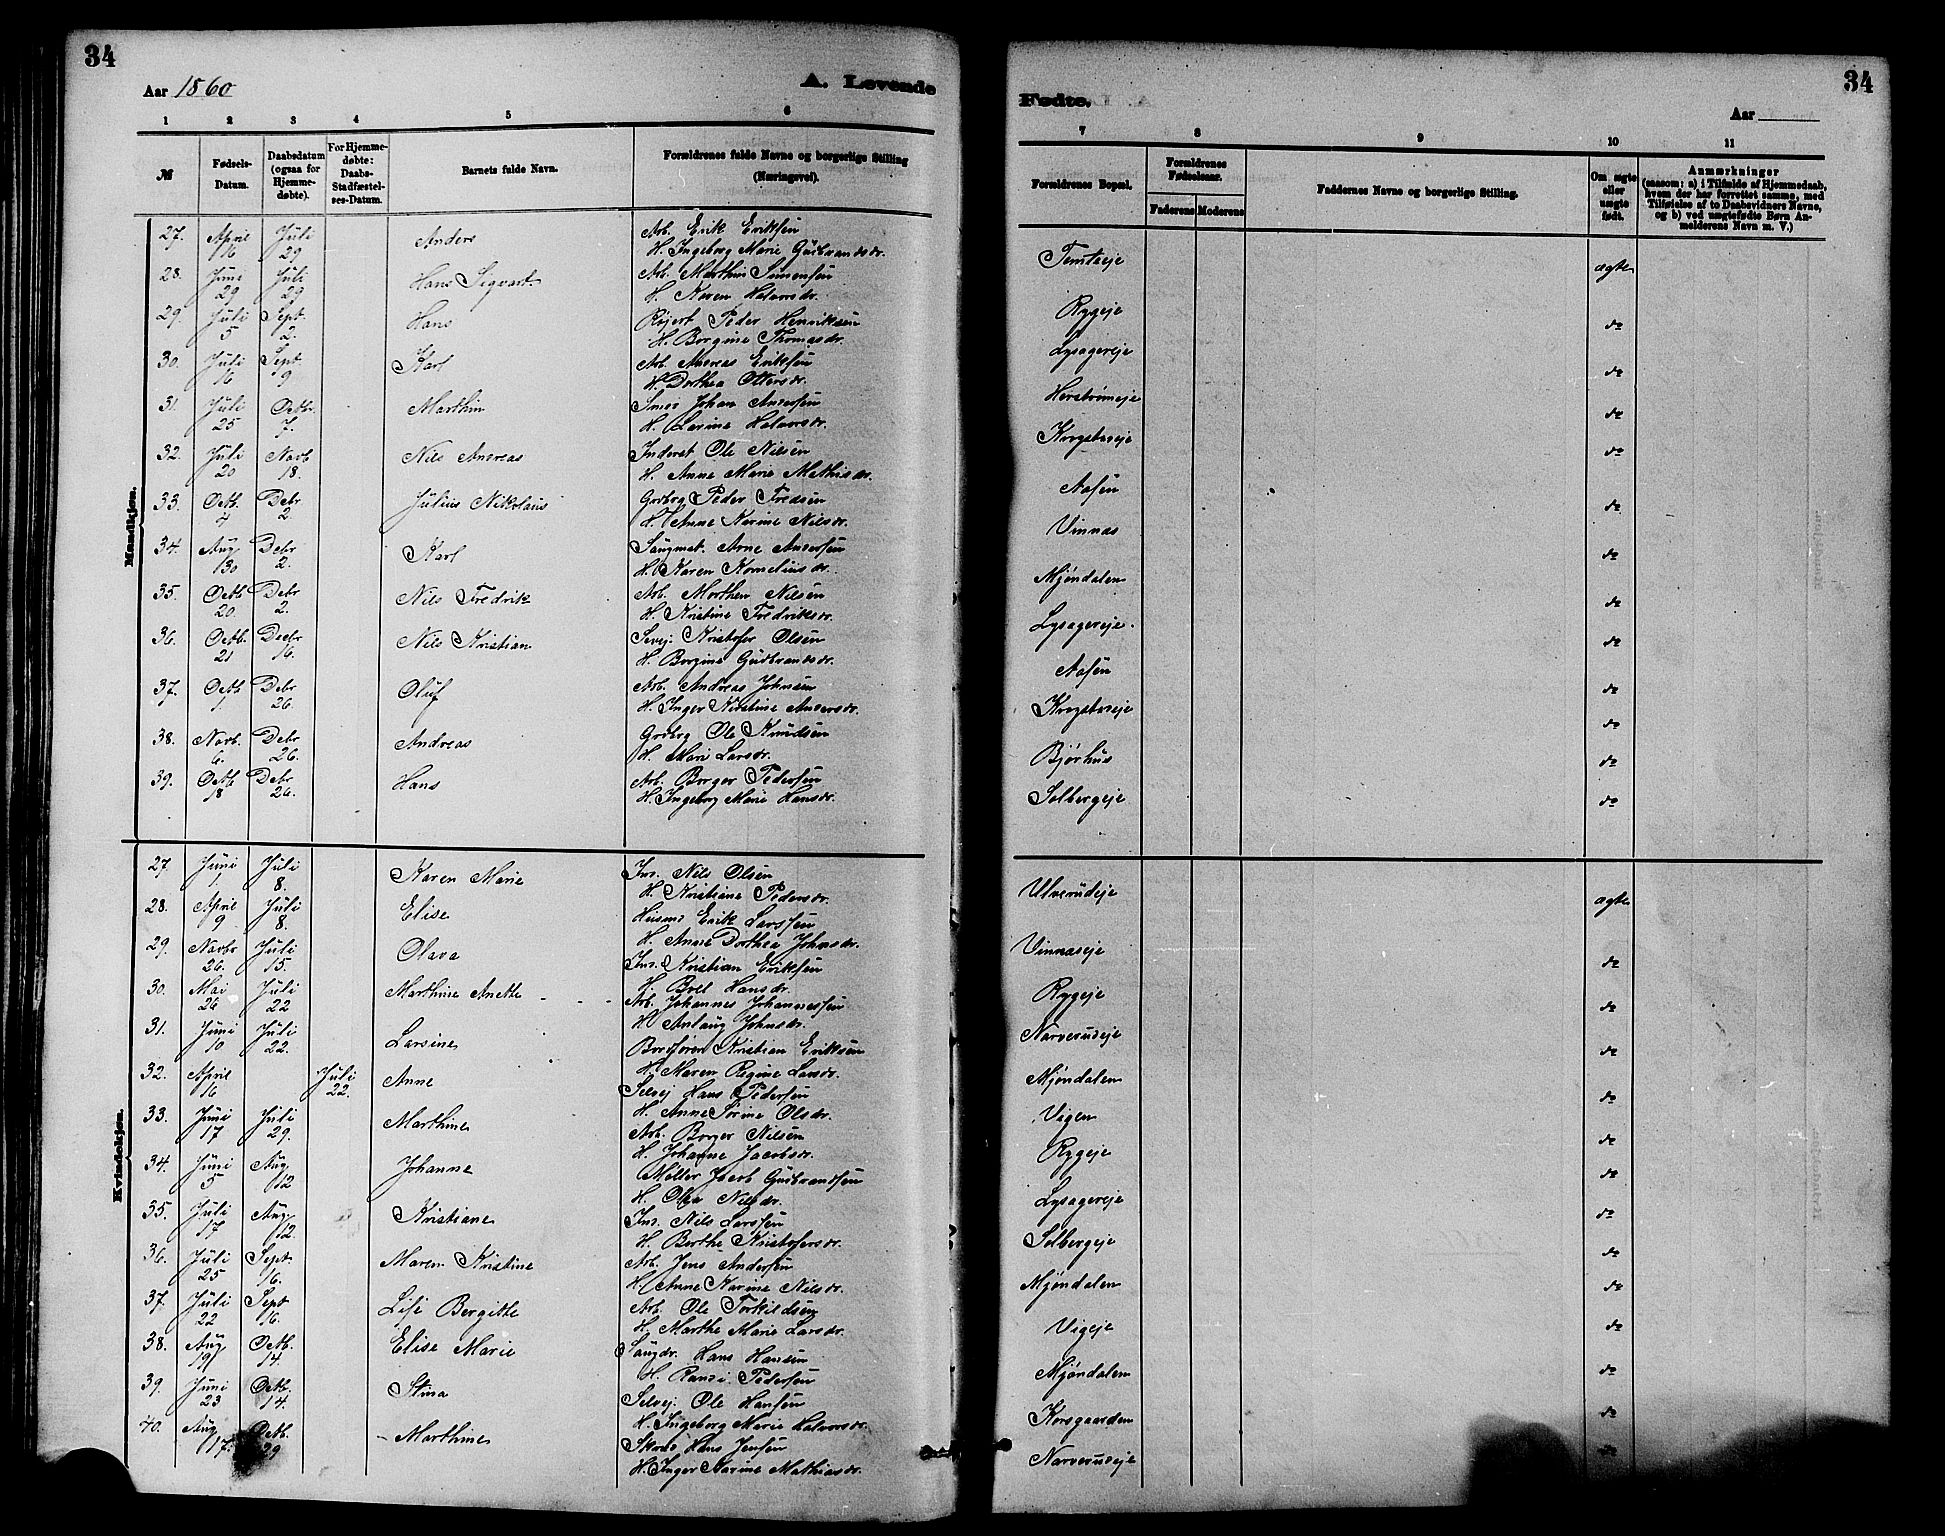 34
Aar 1860
A. Levende
1 2 3 4 5 6
№
Fødsels-Datum.
Daabsdatum (ogsaa for Hjemmedøbte).
For Hjemmedøbte: Daabs-Stadfæstelses-Datum.
Barnets fulde Navn.
Forældrenes fulde Navne og borgerlige Stilling (Næringsvei).
Mandkjøn.
27. April 16 Juli 29 Anders Arb. Erik Eriksen
H. Ingeborg Marie Gudbrandsdr.
28. Juni 29 Juli 29 Hans Sigvart Arb. Marthin Simensen
H. Karen Halvorsdr.
29. Juli 5 Sept. 2. Hans Peder Henriksen
H. Borgine Thomasdr.
30. Juli 16 Sept. 9 Karl Arb. Andreas Eriksen
H. Dorthea Ottersdr.
31. Juli 25 Octbr. 7. Marthin Smed Johan Andersen
H. Lovine Halvorsdr.
32. Juli 20 Novb 18. Nils Andreas Inderst Ole Nilsen
H. Anne Marie Mathisdr.
33. Octb. 4 Debr 2. Julius Nikolaus Grdbrg Peder Fredsen
H. Anne Karine Nilsdr.
34. Aug 30 Debr 2. Karl Saugmst. Arne Andersen
H. Karen Korneliusdr.
35. Octb 20. Debr 2. Nils Fredrik Arb. Morthen Nilsen
H. Kristine Fredriksdr.
36. Octb. 21 Decbr 16. Nils Kristian Selvej. Kristofer Olsen
H. Borgine Gudbrandsdr.
37. Octb 1 Debr 26. Oluf Arb. Andreas Johnsen
H. Inger Kirstine Andersdr.
38. Novb. 6. Debr 26. Andreas Grdbrg Ole Knudsen
H. Mari Larsdr.
39. Octb 18 Debr 26. Hans Arb. Borger Pedersen
H. Ingeborg Marie Hansdr.
Kvindekjøn.
27. Juni 1 Juli 8. Karen Marie Ins. Nils Olsen
H. Kristiane Pedersdr.
28. April 9 Juli 8. Elise Husmd Erik Larssen
H. Anne Dorthea Johnsdr.
29. Novbr 26. Juli 15. Olava Ins. Kristian Eriksen
H. Boel Hansdr.
30. Mai 26 Juli 22 Marthine Anette Arb. Johannes Johannessen
H. Anlaug Johnsdr.
31. Juni 10 Juli 22. Larsine Bordfører Kristian Eriksen
H. Maren Regine Larsdr.
32. April 16 Juli 22. Anne Selvej Hans Pedersen
H. Anne Sørine Olsdr.
33. Juni 17 Juli 29. Marthine Arb. Borger Nilsen
H. Johanne Jacobsdr.
34. Juni 5 Aug 12 Johanne Møller Jacob Gudbrandsen
H. Olea Nilsdr.
35. Juli 17 Aug. 12. Kristiane Ins. Nils Larssen
H. Berthe Kristofersdr.
36. Juli 25 Sept. 16. Maren Kristine Arb. Jens Andersen
H. Anne Karine Nilsdr.
37. Juli 22 Sept 16. Lisi Bergitte Arb. Ole Torkildsen
H. Marthe Marie Larsdr.
38. Aug 19 Octb. 14. Elise Marie Saugdr. Hans Hansen
H. Randi Pedersen
39. Juni 23 Octb. 14. Stina Selvej. Ole Hansen
H. Ingeborg Marie Halvorsdr.
40. Aug 17. Octb. 29 Marthine Skrædr Hans Jensen
H. Inger Karine Mathiasdr.
34
Fødte.
Aar
7 8 9 10 11
Forældrenes Bopæl.
Forældrenes Fødselsaar.
Faderens Moderens
Faddernes Navne og borgerlige Stilling.
Om ægte eller uægte født.
Anmærkninger
(saasom: a) i Tilfælde af Hjemmedaab, hvem der har forrettet samme, med Tilføielse af to Daabsvidners Navne, og b) ved uægtefødte Børn Anmelderens Navn m. V.)
Tomtseje ægte
Rygeje do
Lysagereje do
Herstrømeje do
Krogsbøseje do
Aasen do
Vinnas do
Mjøndalen do
Lysagereje. do
Aasen do
Krogsbøseje do
Bjørhus do
Solbergeje do
Ulverudeje ægte
Vinnaseje do
Rygeje do
Narverudeje do
Mjøndalen do
Vigen do
Rygeje do
Lysagereje do
Solbergeje do
Mjøndalen do
Vigeje do
Mjøndalen do
Korsgaarden do
Narverudeje do